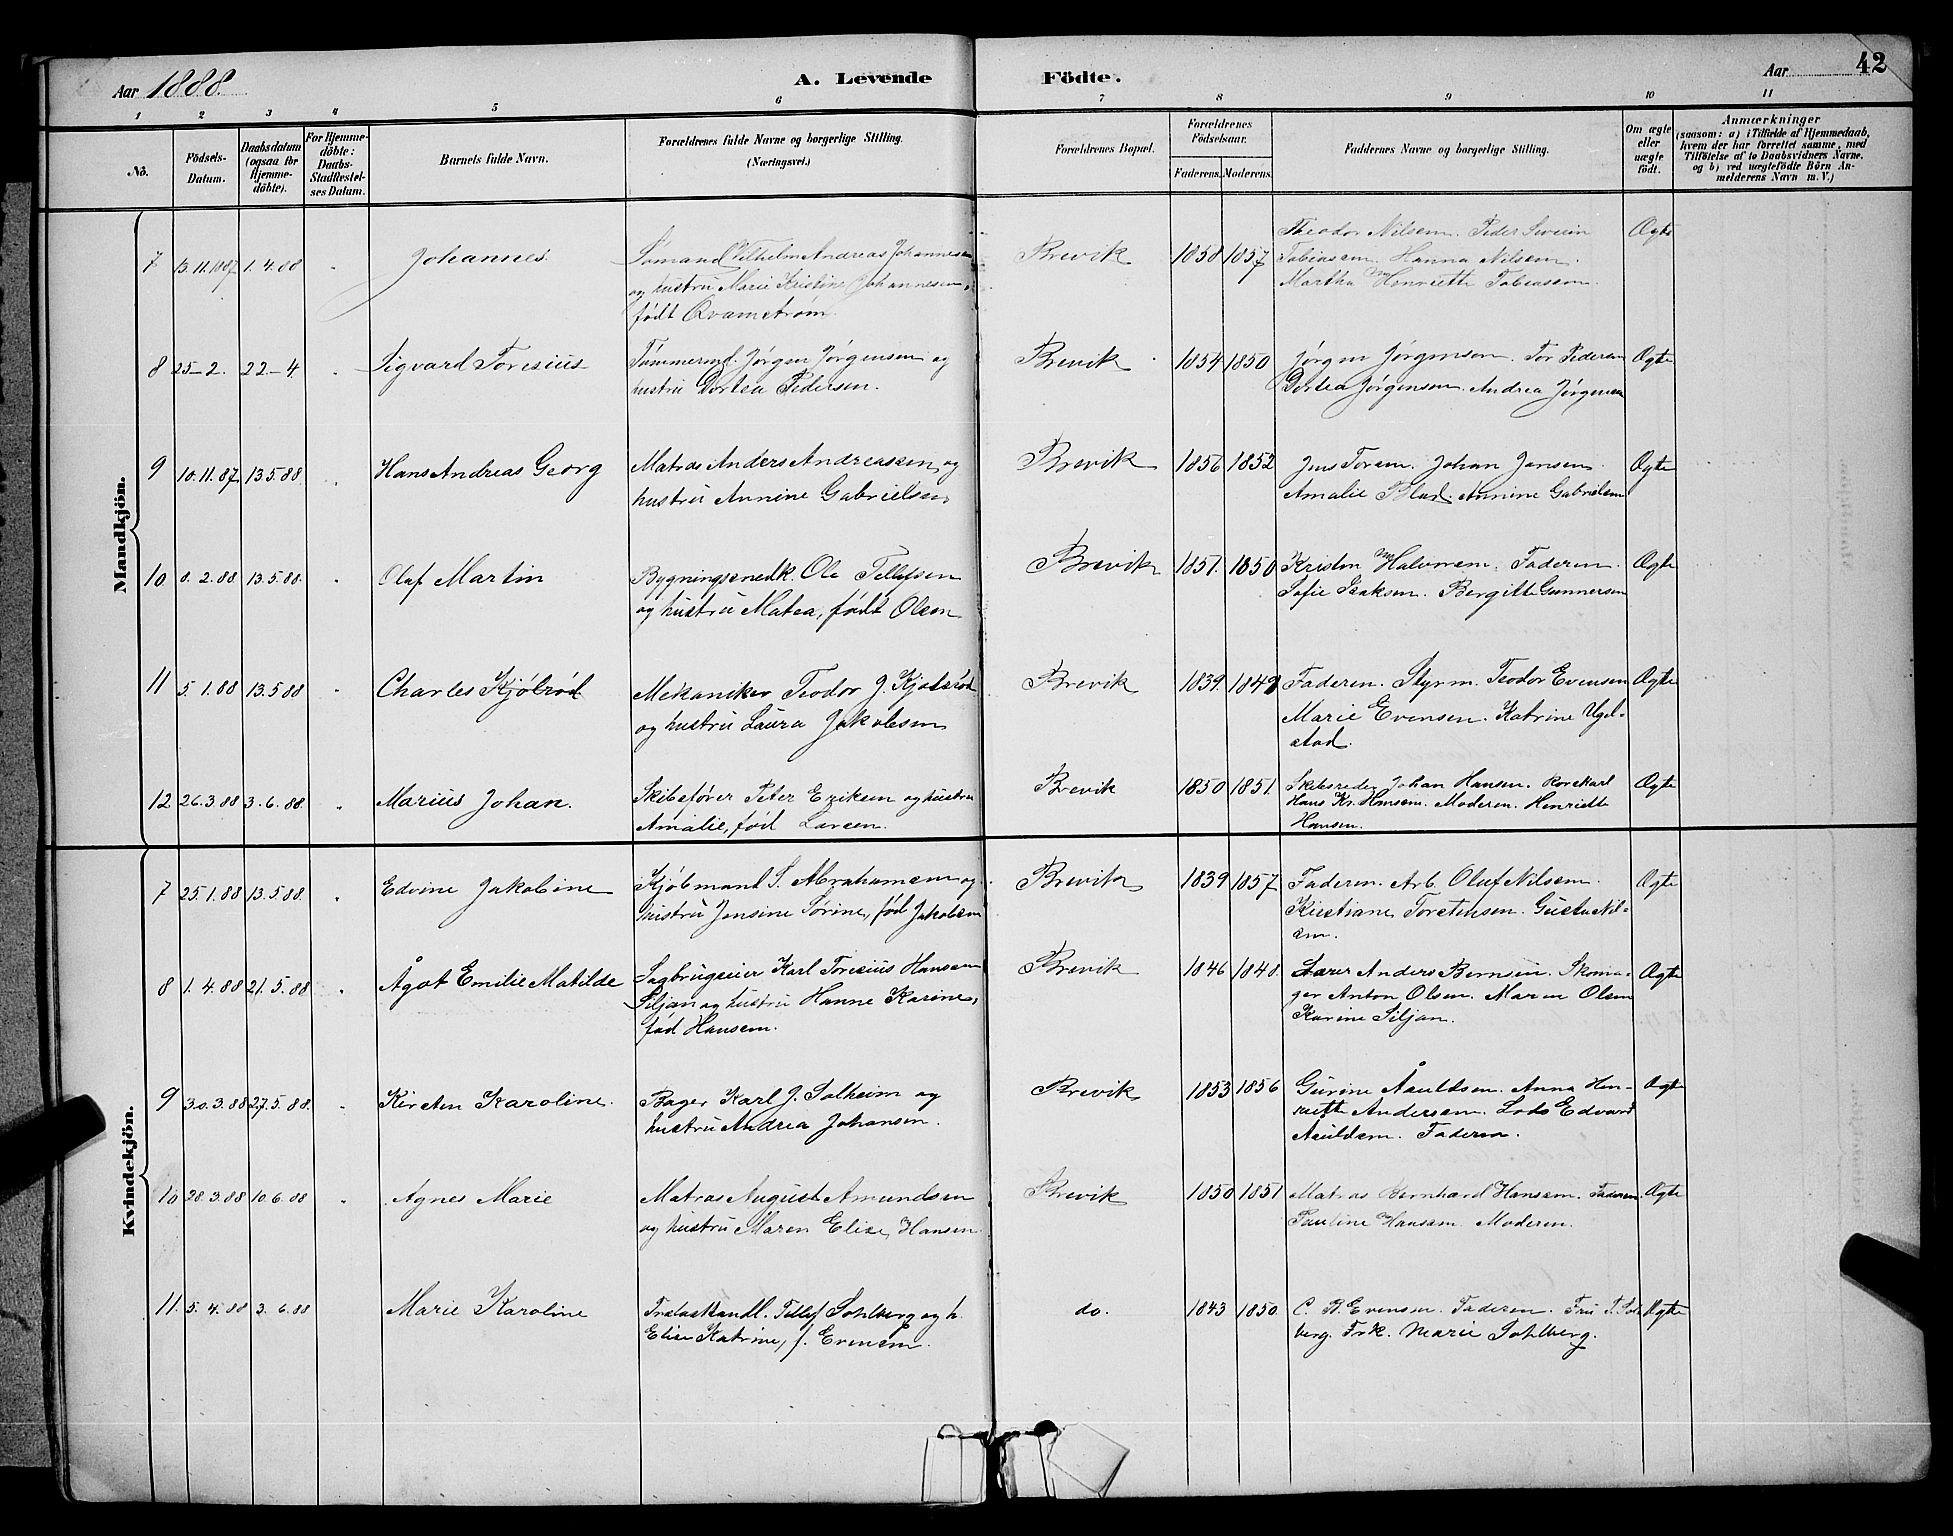 Aar 1888. A. Levende Födte. Aar 42
1 2 3 4 5 6 7 8 9 10 11
Nö.
Födsels-Datum.
Daabsdatum (ogsaa for Hjemme-döbte).
For Hjemme-döbte: Daabs-Stadfestel-ses Datum.
Barnets fulde Navn.
Forældrenes fulde Navne og borgerlige Stilling.
(Næringsvei.)
Forældrenes Bopæl.
Forældrenes Födselsaar.
Faderens. Moderens.
Faddernes Navne og borgerlige Stilling.
Om ægte eller uægte födt.
Anmærkninger
(saasom: a) i Tilfælde af Hjemmedaab,
hvem der har forrettet samme, med
Tilföielse af to Daabsvidners Navne,
og b) ved uægtefödte Börn An-
melderens Navn m. V.)
Mandkjön.
7 13.11.1887 1.4.88 " Johannes. Sømand Vilhelm Andreas Johannesen Brevik 1858 1857 Theodor Nilsen. Peder Severin Ægte
og hustru Marie Kristine Johannesen, Tobiassen. Hanna Nilsen.
født Qvamstrøm. Martha Henriette Tobiassen.
8 25-2. 22-4. " Sigvard Toresius Tømmermd. Jørgen Jørgensen og Brevik 1854 1850 Jørgen Jørgensen. Tor Pedersen Ægte
hustru Dortea Pedersen. Dortea Jørgensen. Andrea Jørgensen
9 10.11.87 13.5.88 " Hans Andreas Georg Matros Anders Andreassen og Brevik 1856 1852 Jens Toresen. Johan Jansen. Ægte
hustru Annine Gabrielsen, Amalie Blad. Annine Gabrielsen
10 8.2.88. 13.5.88. " Olaf Martin Bygningssnedk. Ole Tellefsen Brevik 1851. 1850 Kristen Halvorsen. Faderen. Ægte
og hustru Matea, født Olsen Sofie Isaksen. Bergitte Gunnersen
11 5.1.88 13.5.88 " Charles Kjölrød Mekaniker Teodor J. Kjølsrød Brevik 1839. 1849 Faderen. Styrm. Teodor Evensen Ægte
og hustru Laura Jakobsen Marie Evensen. Katrine Ugel-
stad.
12 26.3.88 3.6.88. " Marius Johan. Skibsfører Peter Eriksen og hustru Brevik 1850 1851. Skibsreder Johan Hansen. Rorskarl Ægte
Amalie, fød Larsen. Hans Kr. Hansen. Moderen. Henriette
Hansen.
Kvindekjön.
7 25.1.88 13.5.88. " Edvine Jakobine Kjøbmand S. Abrahamsen og Brevik 1839 1857 Faderen. Arb. Oluf Nilsen. Ægte
hustru Jensine Sørine, fød Jakobsen Kirstiane Torstensen. Gusta Nil-
sen.
8 1.4.88 21.5.88 " Ågot Emilie Matilde Sagbrugseier Karl Toresius Hansen Brevik 1846 1848. Lærer Anders Bernsen. Skoma- Ægte
Siljan og hustru Hanne Karine, ger Anton Olsen. Maren Olsen
fød Hansen. Karine Siljan.
9 30.3.88 27.5.88. " Kirsten Karoline. Bager Karl J. Solheim og Brevik 1853 1856 Gurine Åsuldsen. Anna Hen- Ægte
hustru Andrea Johansen. riette Andersen. Lods Edvard
Asuldsen. Faderen.
10 28.3.88 10.6.88 " Agnes Marie Matros August Amundsen Brevik 1850 1851 Matros Bernhard Hansen. Faderen. Ægte
og hustru Maren Elise, Hansen. Pauline Hansen. Moderen.
11. 5.4.88 3.6.88 Marie Karoline Trælasthandl. Tellef Sohlberg og h. do. 1843 1850. C. R. Evensen. Faderen. Fru T. Sohl- Ægte
Elise Katrine, f. Evensen. berg. Frk. Marie Sohlberg.